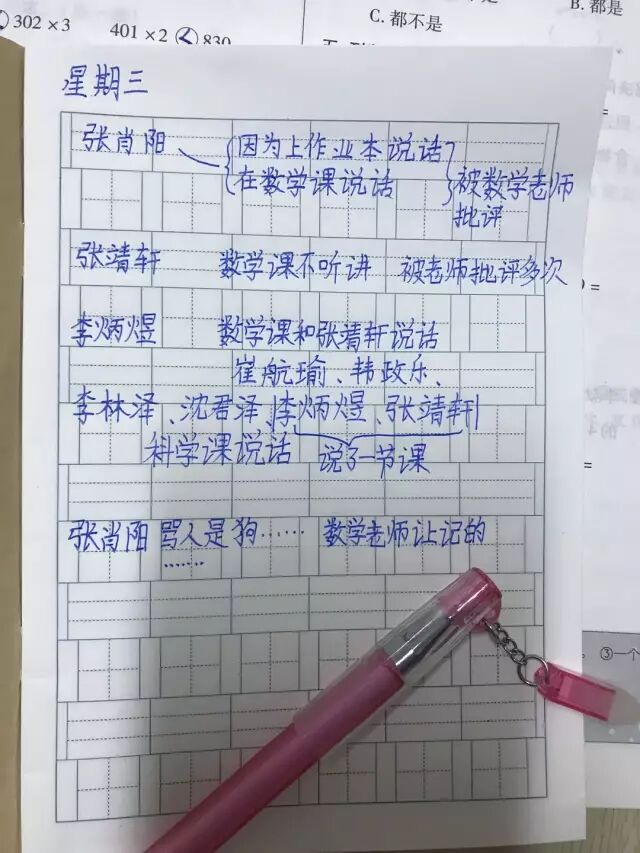 302×3 401×2 830
C. 都不是
B. 都是
星期三
张肖阳 因为上作业本说话
在数学课说话 被数学老师
批评
张靖轩 数学课不听讲 被老师批评多次
李炳煜 数学课和张靖轩说话
崔航瑜、韩政乐、
李林泽、沈君泽、李炳煜、张靖轩
科学课说话 说了一节课
张肖阳骂人是狗…… 数学老师让记的
……
③一个